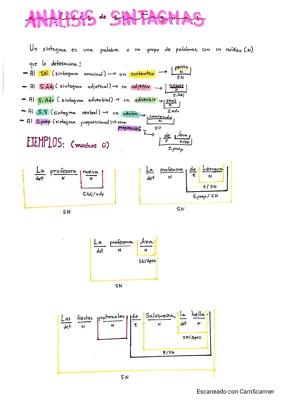 ANÁLISIS de SINTAGMAS
Un sintagma es una palabra o un grupo de palabras, con un núcleo (N)
que lo determina:
- Al SN (sintagma nominal) → un sustantivo perro
N
SN
- Al S.Adj (sintagma adjetival) → un adjetivo
N
S.Adj
- Al S.Adv (sintagma adverbial) → un adverbio
N
S.Adv
- Al S.V (sintagma verbal) → un verbo
N
SV
- Al S.prep (sintagma preposicional) → una preposición de Ana
E N
T/SN
S.prep
EJEMPLOS: (muchos☺)
La profesora nueva
det N N
S.Adj/ady
SN
La profesora de Lengua
det N E N
T/SN
S.prep/CN
SN
La profesora Ana
det N N
SN/Apos
SN
Las fiestas patronales de Salobreña, la bella
det N N E N det N
SN/Apos
T/SN
SN
Escaneado con CamScanner